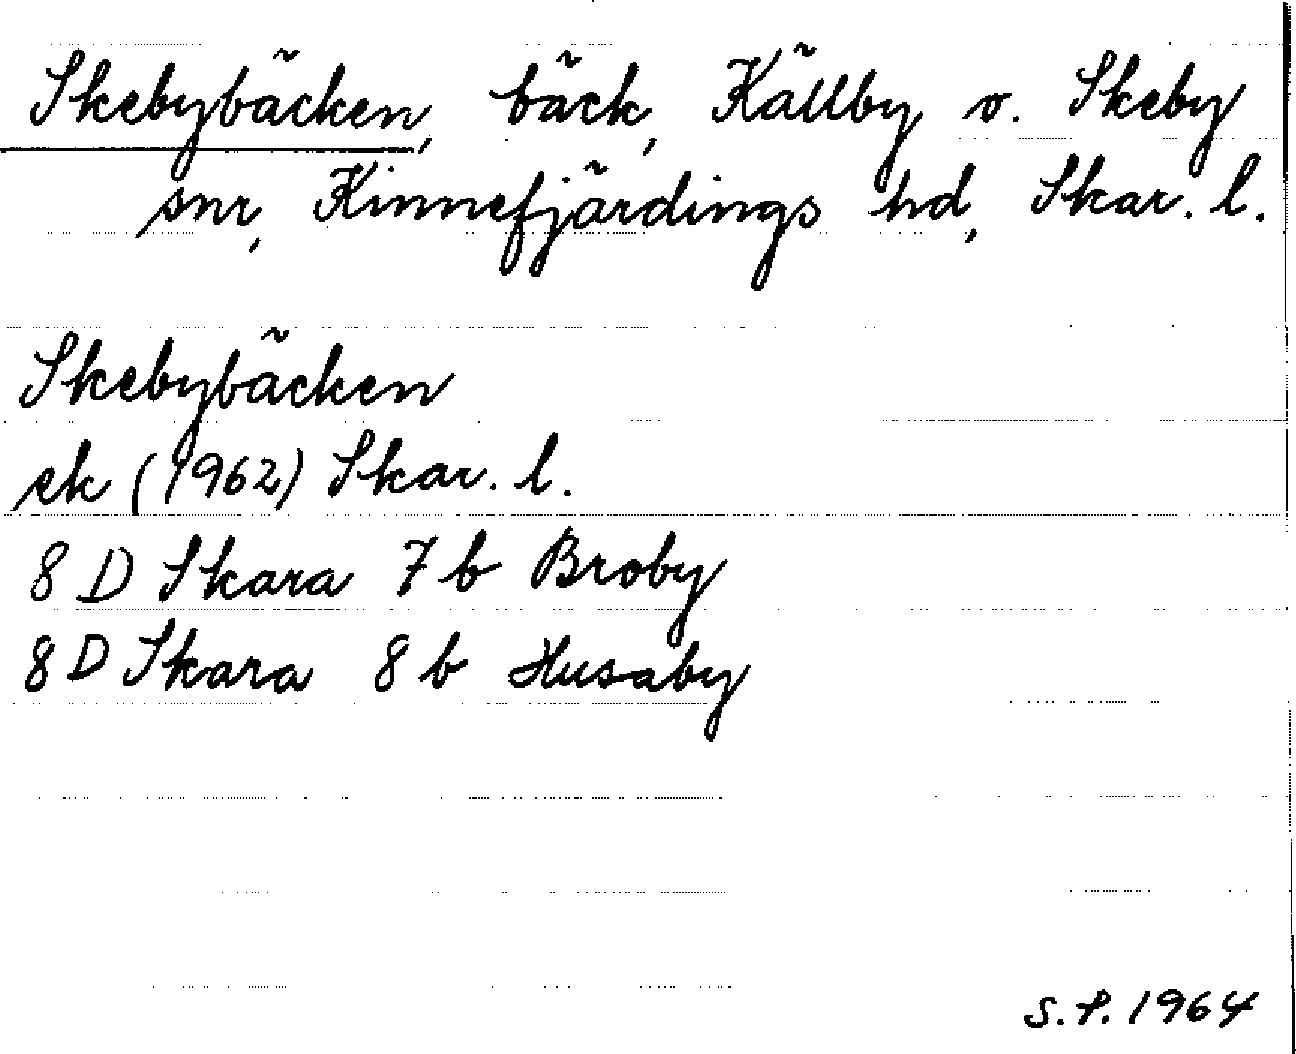 Skebybäcken, bäck, Källby o. Skeby
snr, Kinnefjärdings hd, Skar. l.
Skebybäcken
ek (1962) Skar. l.
8 D Skara 7 b Broby
8 D Skara 8 b Husaby
S.P. 1964